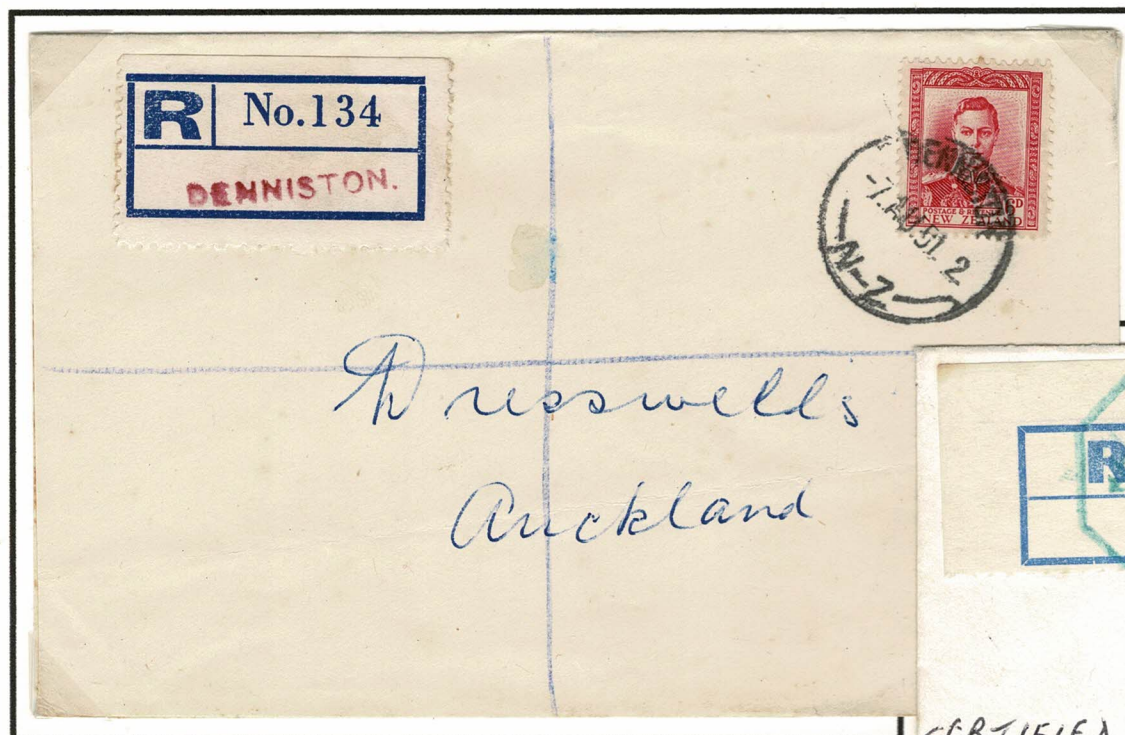 R No.134
DENNISTON.
6D
POSTAGE & REVENUE
NEW ZEALAND
DENNISTON
-7.AU.51.2
N-Z
Dresswells
Auckland
R
CERTIFIED